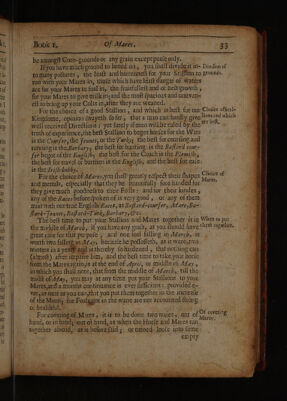 Book 1. Of Mares. 33
be amongst Corn-grounds or any grain except pulse only.
If you have much ground to breed on, you must divide it in- Division of
to many pastures, the least and barrenest for your Stallion to grounds.
run with your Mares in, those which have danger of waters
are for your Mares to foal in, the fruitfullest and of best growth,
for your Mares to give milk in; and the most spacious and
est to bring up your Colts in, after they are weaned.
For the choice of a good Stallion, and which is best for our Choice of
Kingdome, opinion swayeth so far, that a man can hardly give
well received Directions; yet surely if men will be ruled by the
truth of experience, the best Stallion to beget horses for the Wars
is the Courser, the Jennet, or the Turk; the best for coursing and
running is the Barbary, the best for hunting is the Bastard cour-
ser begot of the English, the best for the Coach is the Flemish,
the best for travel or burthen is the English; and the best for ease
is the Irish-hobby.
For the choice of Mares, you shall greatly respect their shapes Choice of
and mettals, especially that they be beautifully fore-handed for Mares.
they give much goodness to their Foals: and for their kindes,
any of the Races before spoken of is very good, or any of them
mixt with our true English Races, as Bastard-courser, Mare, Ba-
stard-Jennet, Bastard-Turk, Barbary, &c.
The best time to put your Stallions and Mares together is in When to put
the middle of March, if you have any grass, as you should have them together.
great care for that purpose; and one foal falling in March, is
worth two falling in May, because he possesseth, as it were, two
winters in a year, and is thereby so hardened, that nothing can
(almost) after impaire him, and the best time to take your horse
from the Mares again, is at the end of April, or middle of May,
in which you shall note, that from the middle of March, till the
midst of May, you may at any time put your Stallions to your
Mares, and a moneths continuance is ever sufficient; provided e-
ver, as near as you can, that you put them together in the increase
of the Moon, for Foals got in the wane are not accounted strong
or healthful.
For covering of Mares, it is to be done two wayes, out of Of covering
hand, or in hand; out of hand, as when the Horse and Mares run Mares.
together abroad, as is before said, or turned loose into some
empty